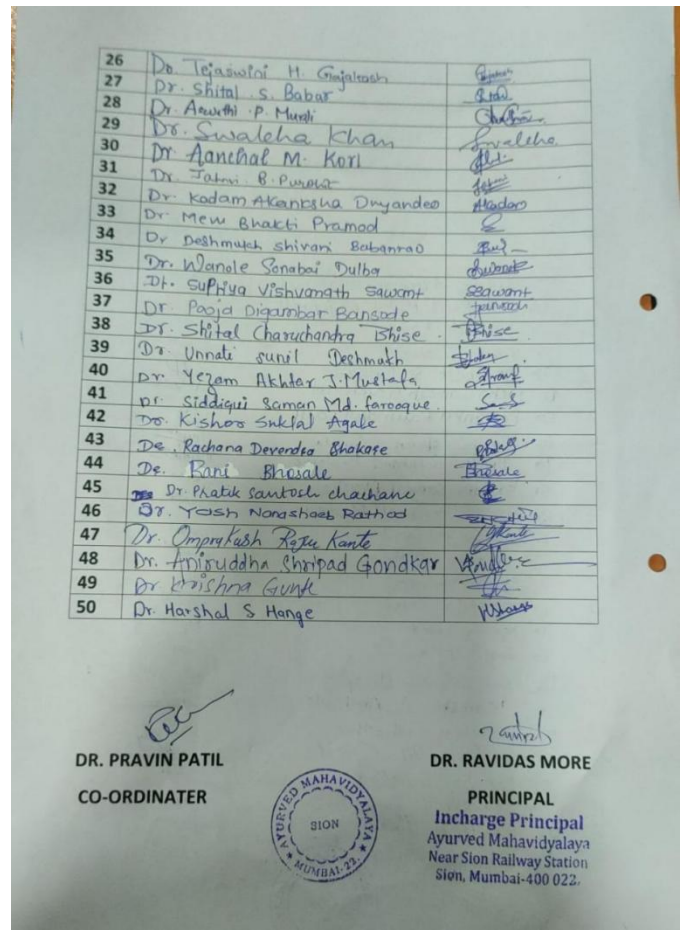 26 Dr. Tejaswini H.
27 Dr. Shital S. Babar
28 Dr. P. Murali
29 Dr. Swaleha Khan Swaleha
30 Dr Aanchal M. Kori
31 Dr. B. Purohit
32 Dr. Kadam Akanksha Dnyandeo AKadam
33 Dr. Mew Bhakti Pramod
34 Dr Deshmukh Shivani Babanrao
35 Dr. Wanole Sonabai Dulba SWanole
36 Dr. Supriya Vishvanath Sawant SSawant
37 Dr. Pooja Digambar Bansode
38 Dr. Shital Charuchandra Bhise Bhise
39 Dr. Unnati Sunil Deshmukh
40 Dr Yezam Akhtar J. Mustafa
41 Dr. Siddiqui Saman Md. farooque
42 Dr. Kishor Suklal Agale
43 Dr. Rachana Devendra Bhakare
44 Dr. Rani Bhosale Bhosale
45 Dr. Pratik Santosh
46 Dr. Yash Rathod
47 Dr. Omprakash Raju Kante
48 Dr. Aniruddha Shripad Gondkar
49 Dr. Krishna
50 Dr. Harshal S Hange
DR. PRAVIN PATIL DR. RAVIDAS MORE
CO-ORDINATER PRINCIPAL
Incharge Principal
Ayurved Mahavidyalaya
Near Sion Railway Station
Sion, Mumbai-400 022.
AYURVED MAHAVIDYALAYA
SION
MUMBAI-22.